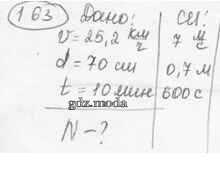 163 Дано: СИ:
v = 25,2 км/ч 7 м/с
d = 70 см 0,7 м
t = 10 мин 600 с
gdz.moda
N - ?